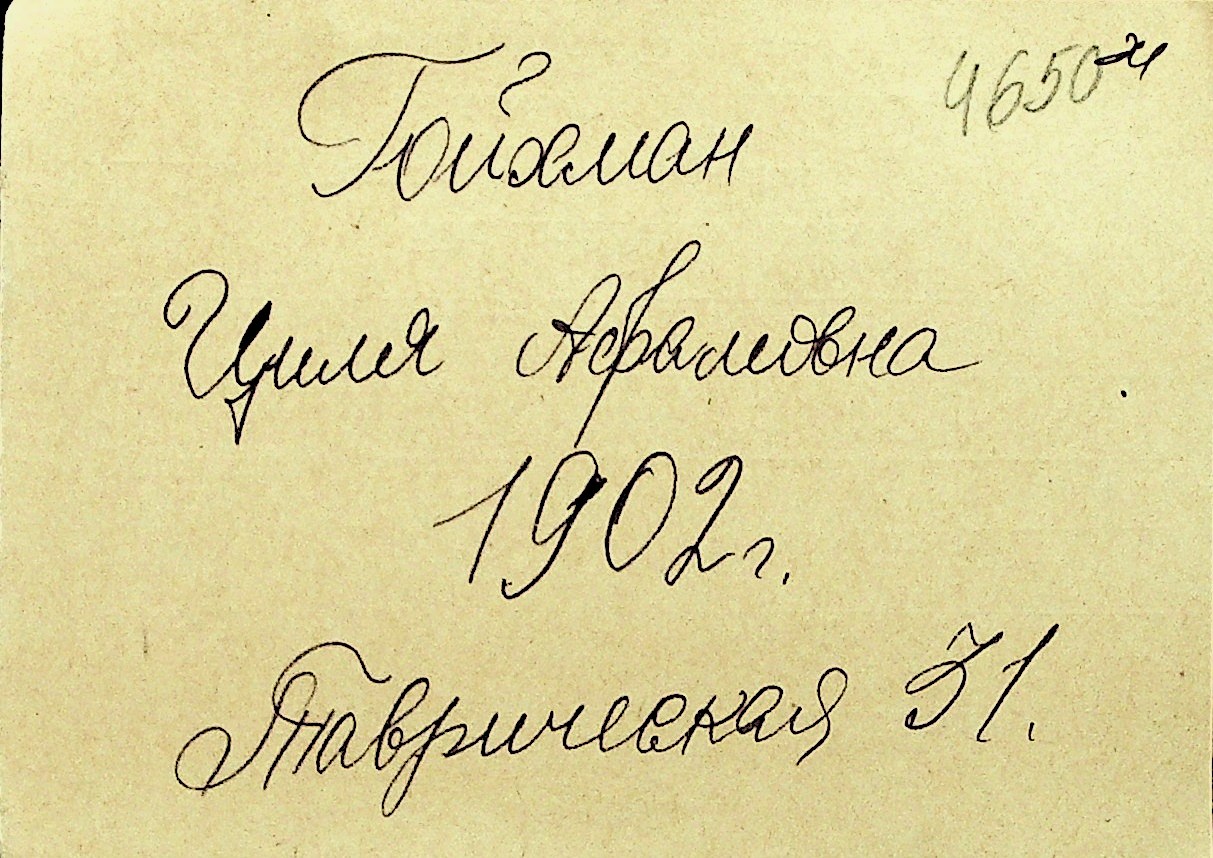 4650 н
Гойхман
Циля Афалиовна
1902 г.
Таврическая 31.